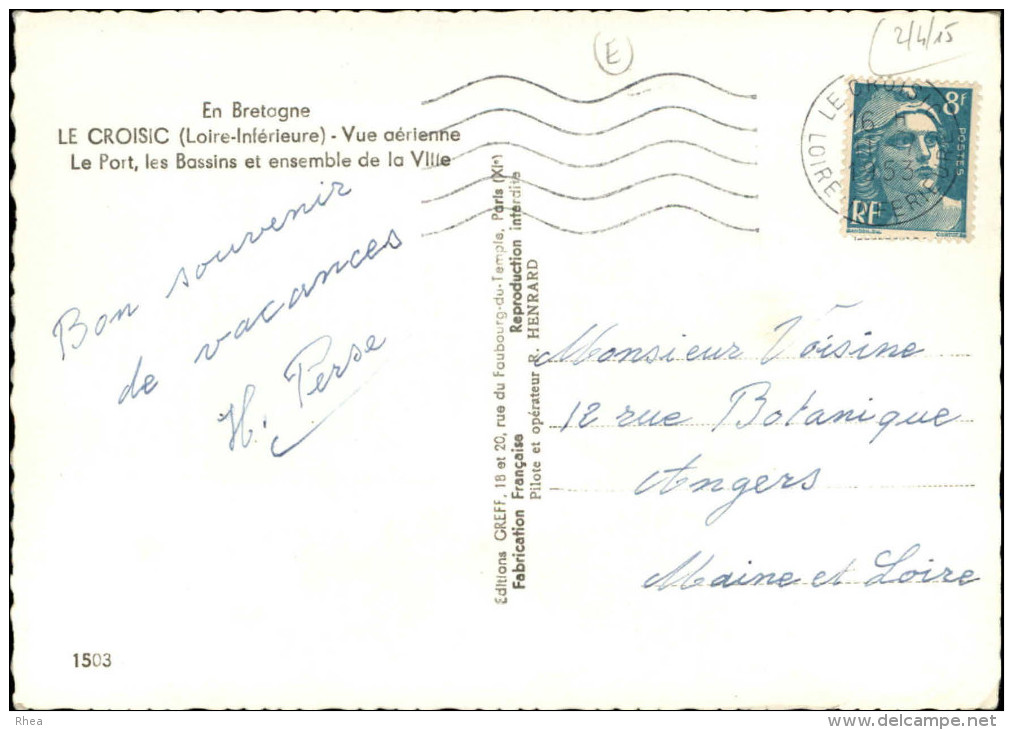 2/4/15
E
En Bretagne
LE CROISIC (Loire-Inférieure) - Vue aérienne
Le Port, les Bassins et ensemble de la Ville
Bon souvenir
de vacances
H. Perse
1503
Editions GREFF, 18 et 20, rue du Faubourg-du-Temple, Paris (XIe)
Fabrication Française Reproduction interdite
Pilote et opérateur R. HENRARD
LE CROISIC
16
1953
LOIRE
8F
POSTES
RF
Monsieur Voisine
12 rue Botanique
Angers
Maine et Loire
Rhea
www.delcampe.net